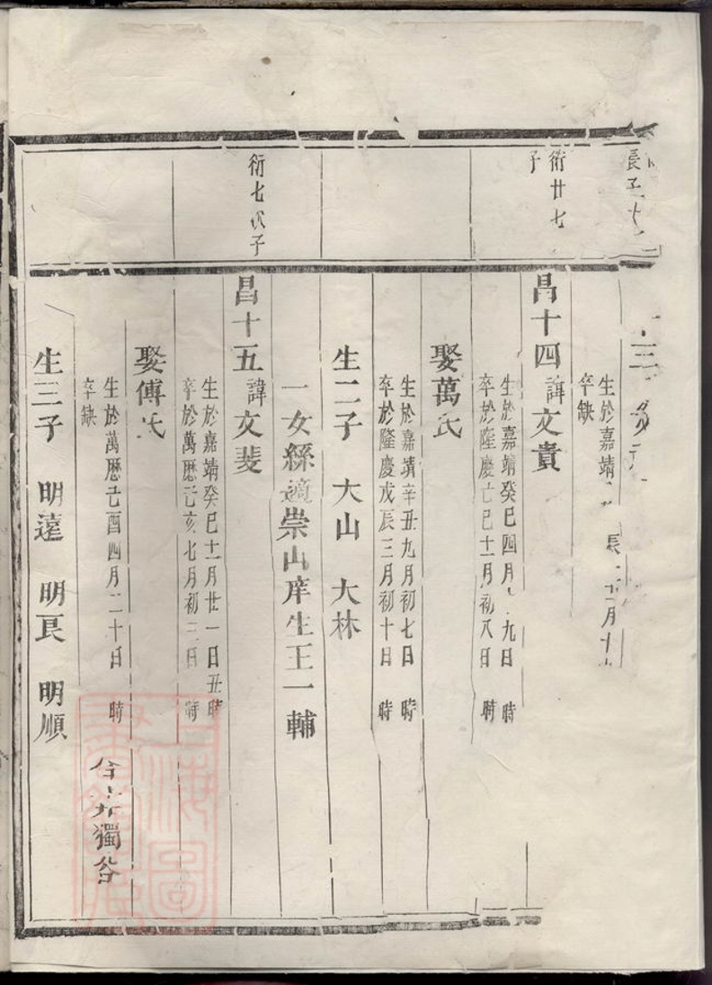 長子
生於嘉靖
卒缺
衍廿七
子
昌十四諱文貴
生於嘉靖癸巳四月 九日 時
卒於隆慶 巳十一月初八日 時
娶萬氏
生於嘉靖辛丑九月初七日 時
卒於隆慶戊辰三月初十日 時
生二子 大山 大林
一女縣適崇山庠生王一輔
衍七次子
昌十五諱文斐
生於嘉靖癸巳十一月廿一日丑時
卒於萬歷己亥七月初三日 時
娶傅氏
生於萬歷己酉四月二十日 時
卒缺
生三子 明遠 明良 明順
合 獨谷
上海圖書館藏